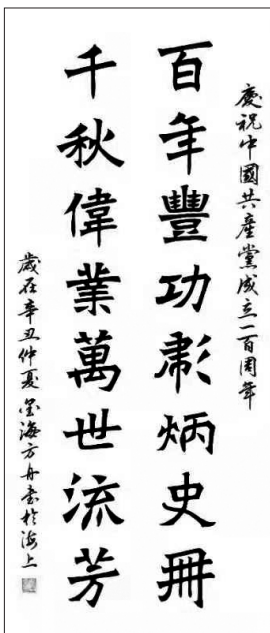 慶祝中國共產黨成立一百周年
百年豐功彪炳史冊
千秋偉業萬世流芳
歲在辛丑仲夏墨海方舟書於海上